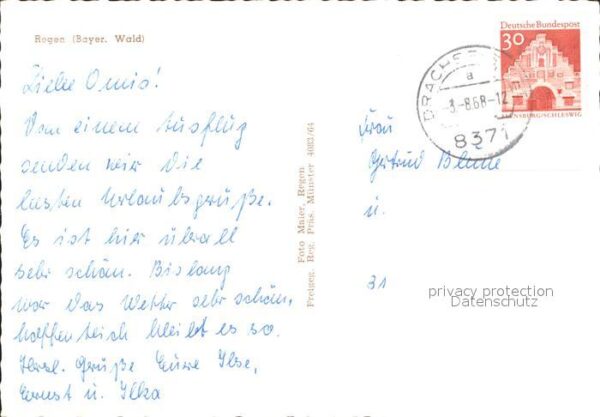 Regen (Bayer. Wald)
Liebe Omis!
Von einem Ausflug
senden wir die
besten Urlaubsgrüße.
Es ist hier überall
sehr schön. Bislang
war das Wetter sehr schön,
hoffentlich bleibt es so.
Herzl. Grüße Eure Ilse,
Ernst u. Ilka
Foto Maier, Regen
Freigeg. Reg. Präs. Münster 4683/64
Deutsche Bundespost
30
FLENSBURG/SCHLESWIG
a
3.-8.68-12
8371
Frau
Gertrud Blume
u.
31
privacy protection
Datenschutz